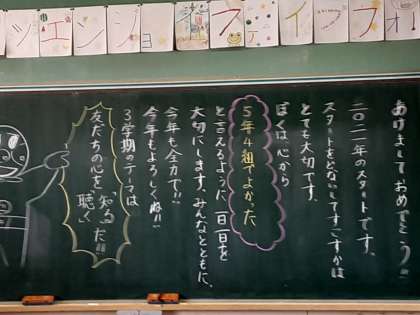 ツェンジョネスティフォ!
あけましておめでとう!!
二〇二一年のスタートです。
スタートをどないしてすごすかは
とても大切です。
ぼくは、心から
5年4組でよかった
と言えるように、一日一日を
大切にします、みんなとともに、
今年も全力で!!
今年もよろしくね!!
3学期のテーマは
友だちの心を「知る」「聴く」だ!!